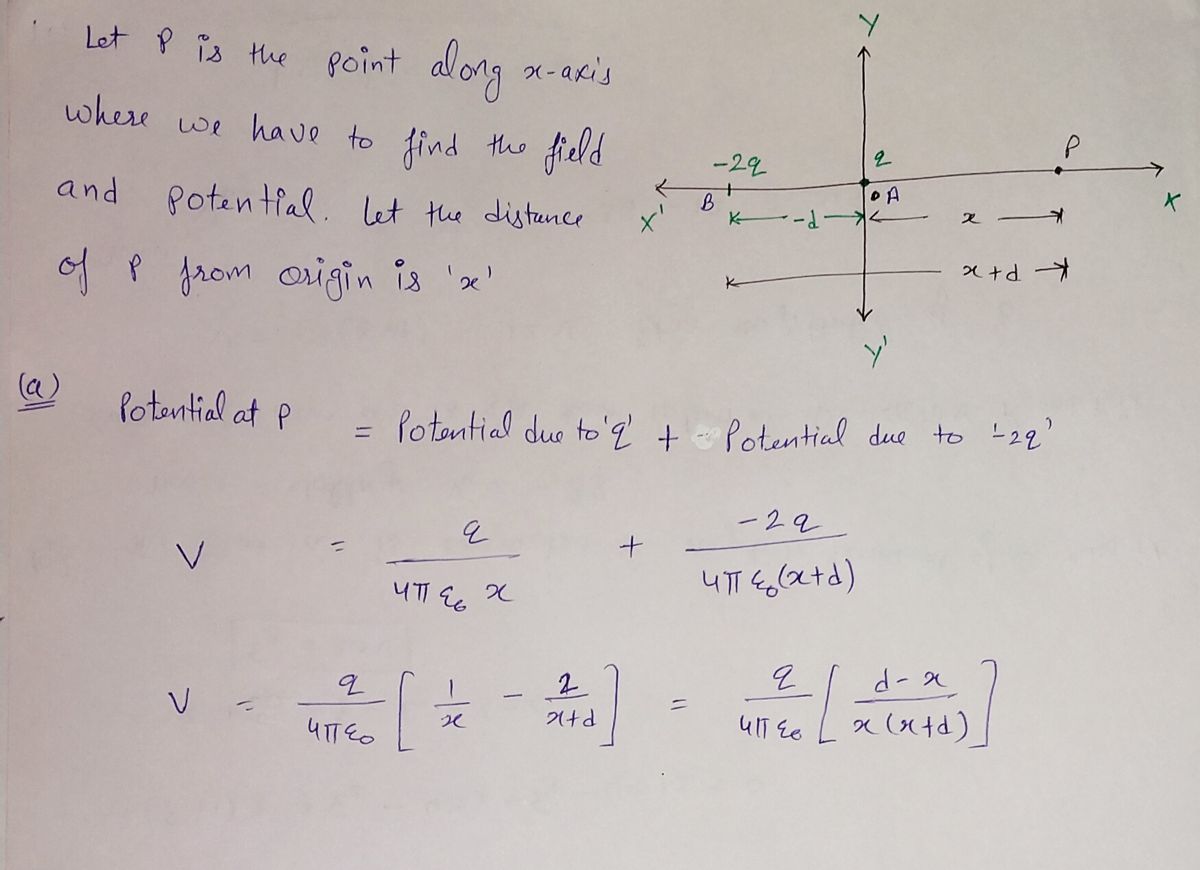 Let P is the point along x-axis
where we have to find the field
and potential. Let the distance
of P from origin is 'x'
Y
-2q q P
X' B -d O A x X
x+d
Y'
(a) Potential at P = Potential due to 'q' + Potential due to '-2q'
V = q/(4π ε₀ x) + -2q/(4π ε₀(x+d))
V = q/(4π ε₀) [ 1/x - 2/(x+d) ] = q/(4π ε₀) [ (d-x)/(x(x+d)) ]